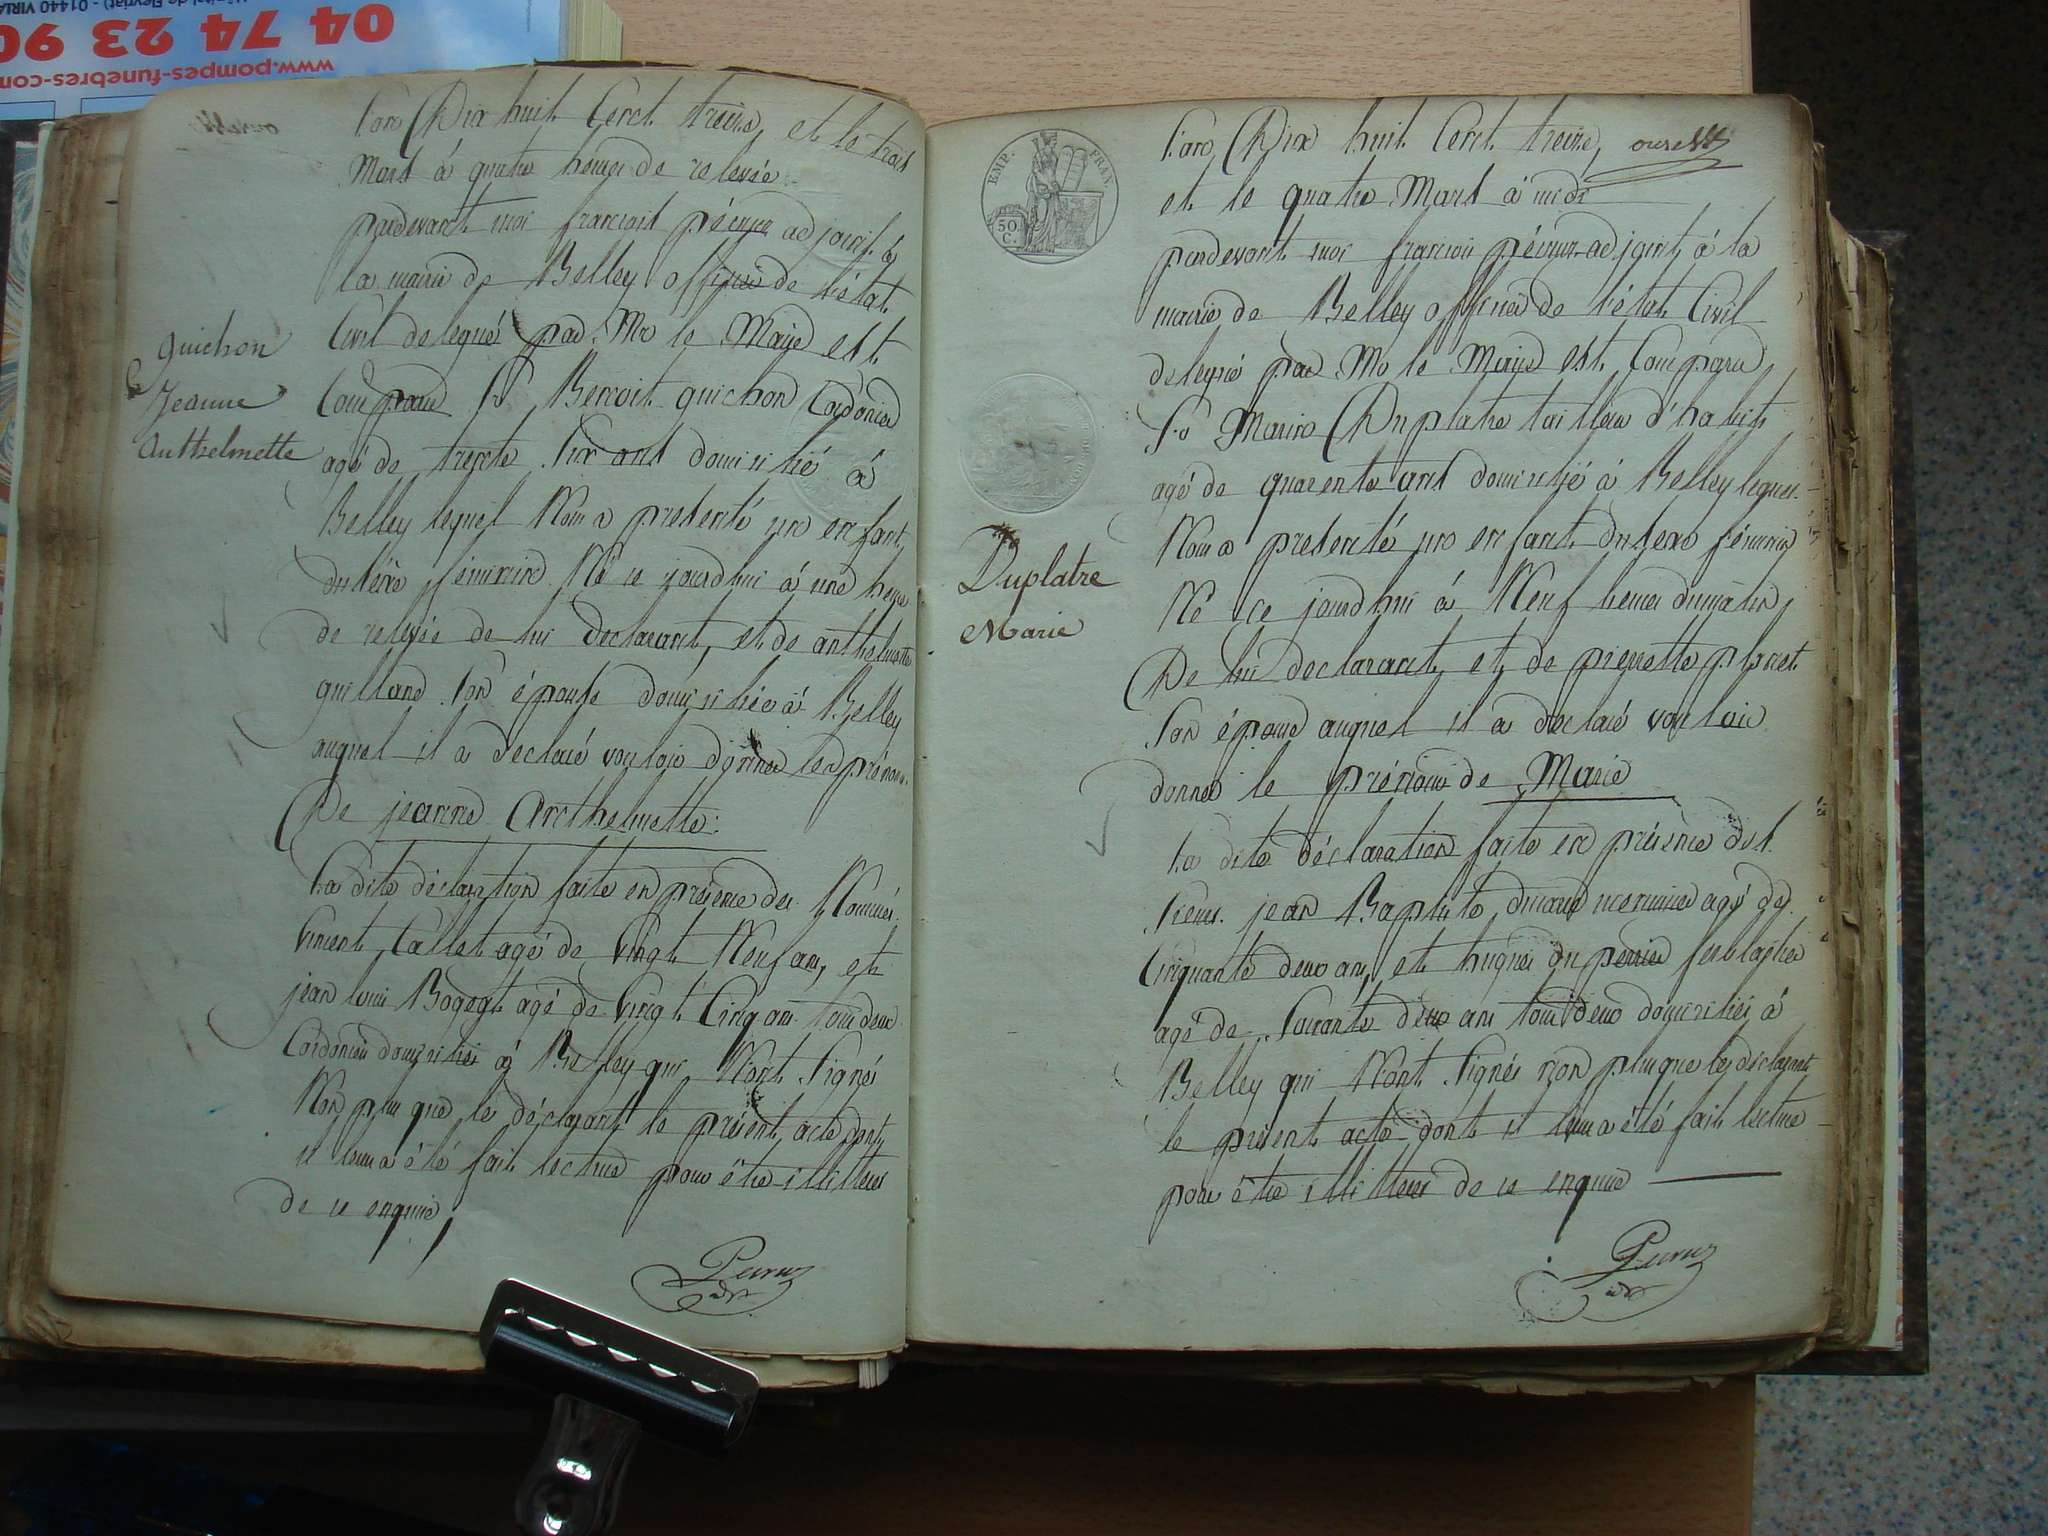 04 74 23 90
www.pompes-funebres-com
- 01440 VIRIA
L'an Dix huit Cent treize, et le trois
Mars à quatre heures de relevée
pardevant moi françois pécruz adjoint à
la mairie de Belley officier de l'état
Civil delegué par Mr le Maire est
Comparu Sr Benoit guichon Cordonier
agé de trente Six ans domicilié à
Belley lequel Nous a presenté un enfant
du séxe féminin Né ce jourdhui à une heure
de relevée de lui déclarant, et de anthelmette
guilland Son épouse domiciliée à Belley
auquel il a déclaré vouloir donner les prénoms
De jeanne Anthelmette.
La dite déclaration faite en présence des Nommés
Vincent Callet agé de Vingt Neuf ans, et
jean louis Bogey agé de Vingt Cinq ans tous deux
Cordoniers domiciliés à Belley qui N'ont Signés
Non plus que le déclarant le présent acte dont
il leur a été fait lecture pour être illitterés
de ce enquis
Pecruz
adt
guichon
Jeanne
Anthelmette
EMP. FRAN.
50
C.
L'an Dix huit Cent treize,
et le quatre Mars à midi
pardevant moi françois pécruz adjoint à la
mairie de Belley officier de l'état Civil
delegué par Mr le Maire est Comparu
Sr Marin Duplatre tailleur d'habits
agé de quarente ans domicilié à Belley lequel
Nous a presenté un enfant du sexe féminin
Né ce jourdhui à Neuf heures du matin,
De lui déclarant, et de pierrette
Son épouse auquel il a déclaré vouloir
donner le prénom de Marie
La dite déclaration faite en présence des
Sieurs jean Baptiste agé de
Cinquante deux ans, et hugues du perrier ferblantier
agé de Soixante deux ans tous deux domiciliés à
Belley qui N'ont Signés non plus que le déclarant
le présent acte dont il leur a été fait lecture
pour être illitterés de ce enquis
Pecruz
adt
Duplatre
Marie